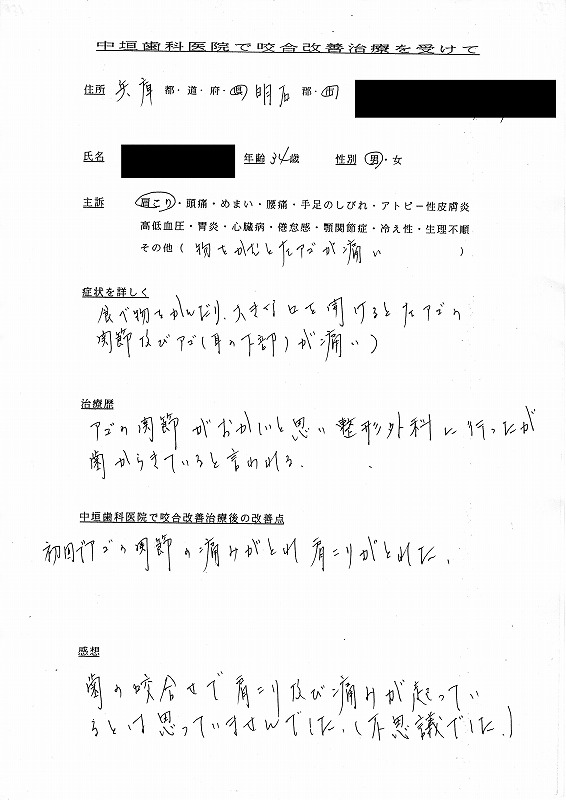 中垣歯科医院で咬合改善治療を受けて
住所 兵庫 都・道・府・県 明石 郡・市
氏名 年齢 34歳 性別 男・女
主訴 肩こり・頭痛・めまい・腰痛・手足のしびれ・アトピー性皮膚炎
高低血圧・胃炎・心臓病・倦怠感・顎関節症・冷え性・生理不順
その他（物をかむと左アゴが痛い）
症状を詳しく
食べ物をかんだり、大きな口を開けると左アゴの
関節及びアゴ(耳の下部)が痛い)
治療歴
アゴの関節がおかしいと思い整形外科に行ったが
歯からきていると言われる.
中垣歯科医院で咬合改善治療後の改善点
初回でアゴの関節の痛みがとれ肩こりがとれた.
感想
歯の咬合せで肩こり及び痛みが起ってい
るとは思っていませんでした.(不思議でした.)